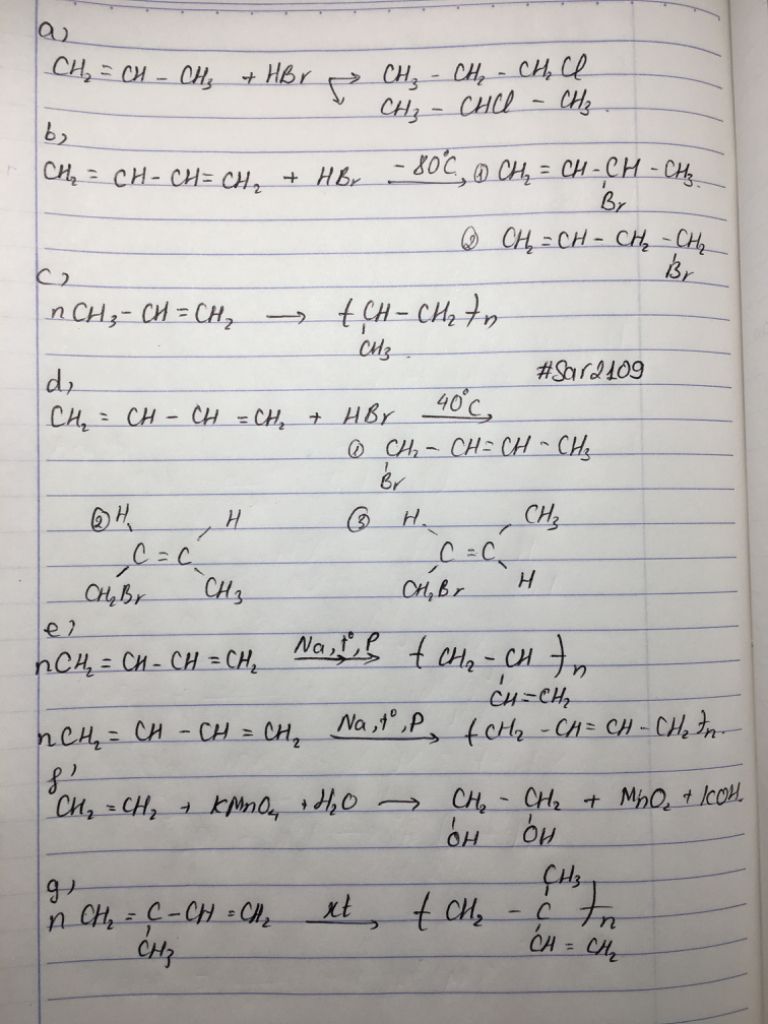 a,
CH₂ = CH - CH₃ + HBr → CH₃ - CH₂ - CH₂Cl
CH₃ - CHCl - CH₃.
b,
CH₂ = CH - CH = CH₂ + HBr -80°C → ① CH₂ = CH - CH - CH₃.
Br
② CH₂ = CH - CH₂ - CH₂
Br
c,
nCH₃ - CH = CH₂ → (CH - CH₂)n
CH₃.
#Sar2109
d,
CH₂ = CH - CH = CH₂ + HBr 40°C →
① CH₂ - CH = CH - CH₃
Br
② H H ③ H CH₃
C = C C = C
CH₂Br CH₃ CH₂Br H
e,
nCH₂ = CH - CH = CH₂ Na, t°, P → (CH₂ - CH)n
CH = CH₂
nCH₂ = CH - CH = CH₂ Na, t°, P → (CH₂ - CH = CH - CH₂)n.
f,
CH₂ = CH₂ + KMnO₄ + H₂O → CH₂ - CH₂ + MnO₂ + KOH.
OH OH
g,
CH₃
n CH₂ = C - CH = CH₂ xt → (CH₂ - C)n
CH₃ CH = CH₂